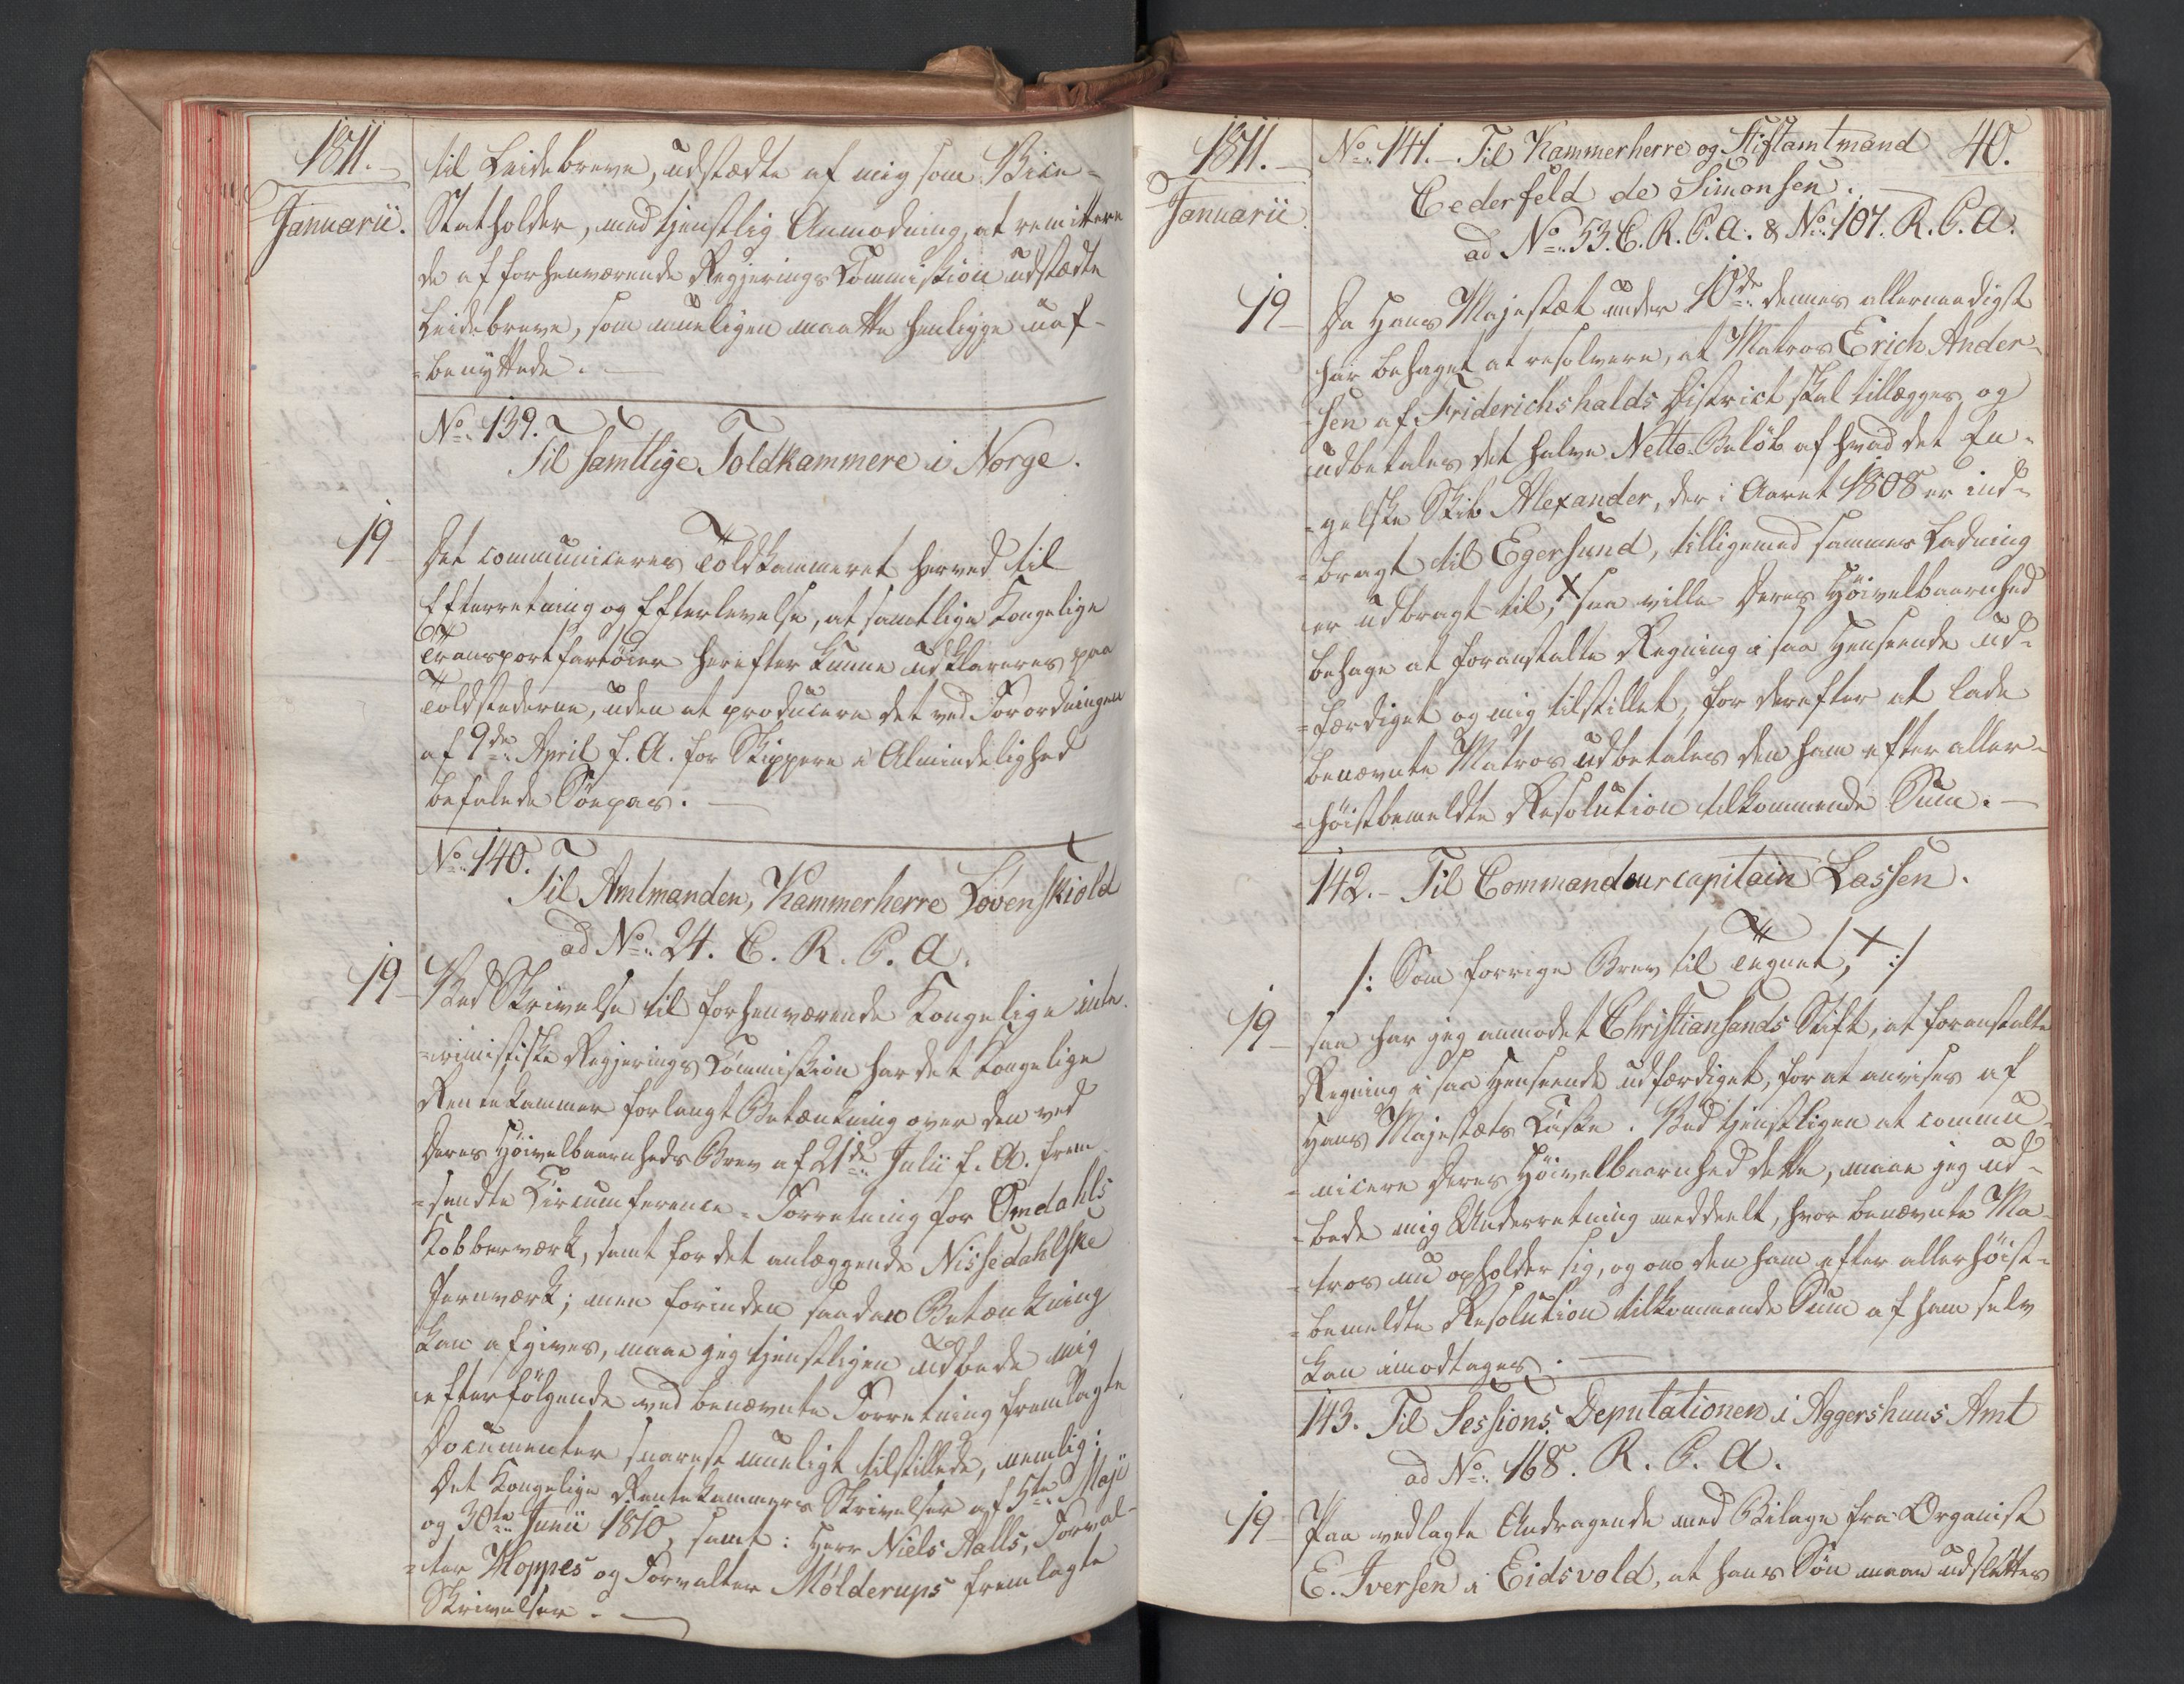 1811.
Januarii.
til Leidebreve, udstædte af mig som Vice-
Statholder, med tjenstlig Anmodning, at remittere
de af forhenværende Regjerings Commission udstædte
Leidebreve, som mueligen maatte henligge uaf-
=benyttede. —
No. 139.
Til samtlige Toldkammere i Norge.
19 – Det communiceres Toldkammeret herved til
Efterretning og Efterlevelse, at samtlige Kongelige
Transportfartöier herefter kunne udklareres paa
Toldstederne, uden at producere det ved Forordningen
af 9de April f. A. for Skippere i Almindelighed
befalede Söepas. —
No. 140.
Til Amtmanden, Kammerherre Lövenskiold
ad No. 24. C. R. C. A.
19 – Ved Skrivelse til forhenværende Kongelige inte-
=rimistiske Regjerings Commission har det Kongelige
Rentekammer forlangt Betænkning over den ved
Deres Höivelbaarenheds Brev af 21de Julii f. A. frem-
=sendte Circumference-Forretning for Omdahls
Kobberværk, samt for det anlæggende Nissedahlske
Jernværk; men forinden saadan Betænkning
kan afgives, maae jeg tjenstligen udbede mig
efterfölgende ved benævnte Forretning fremlagte
Documenter snarest mueligt tilstillede, nemlig:
Det Kongelige Rentekammers Skrivelser af 5te Maji
og 30te Junii 1810, samt: Herr Niels Aalls, Forval-
=ter Hoppes og Forvalter Mölderups fremlagte
Skrivelser. —
1811.
Januarii.
40.
No. 141. – Til Kammerherre og Stiftamtmand
Cederfeld de Simonsen.
ad No. 53. C. R. C. A. & No. 107. R. C. A.
19 – Da Hans Majestæt under 10de dennes allernaadigst
har behaget at resolvere, at Matros Erich Ander-
=sen af Friderichshalds District skal tillægges og
udbetales det halve Netto-Belöb af hvad det En-
=gelske Skib Alexander, der i Aaret 1808 er ind-
=bragt til Egersund, tilligemed sammes Ladning
er udbragt til, X saa ville Deres Höivelbaarenhed
behage at foranstalte Regning i saa Henseende ud-
=færdiget og mig tilstillet, for derefter at lade
benævnte Matros udbetales den ham efter aller-
=höistbemeldte Resolution tilkommende Sum. —
142. – Til Commandeurcapitain Lassen.
/: Som forrige Brev til Tegnet, X :/
19 – saa har jeg anmodet Christiansands Stift, at foranstalte
Regning i saa Henseende udfærdiget, for at anvises af
Hans Majestæts Casse. Ved tjenstligen at commu-
=nicere Deres Höivelbaarenhed dette, maae jeg ud-
=bede mig Underretning meddeelt, hvor benævnte Ma-
=tros nu opholder sig, og om den ham efter allerhöist-
=bemeldte Resolution tilkommende Sum af ham selv
kan imodtages. —
143. Til Sessions Deputationen i Aggershuus Amt
ad No. 168. R. C. A.
19 – Paa vedlagte Andragende med Bilage fra Organist
E. Iversen i Eidsvold, at hans Sön maae udslettes